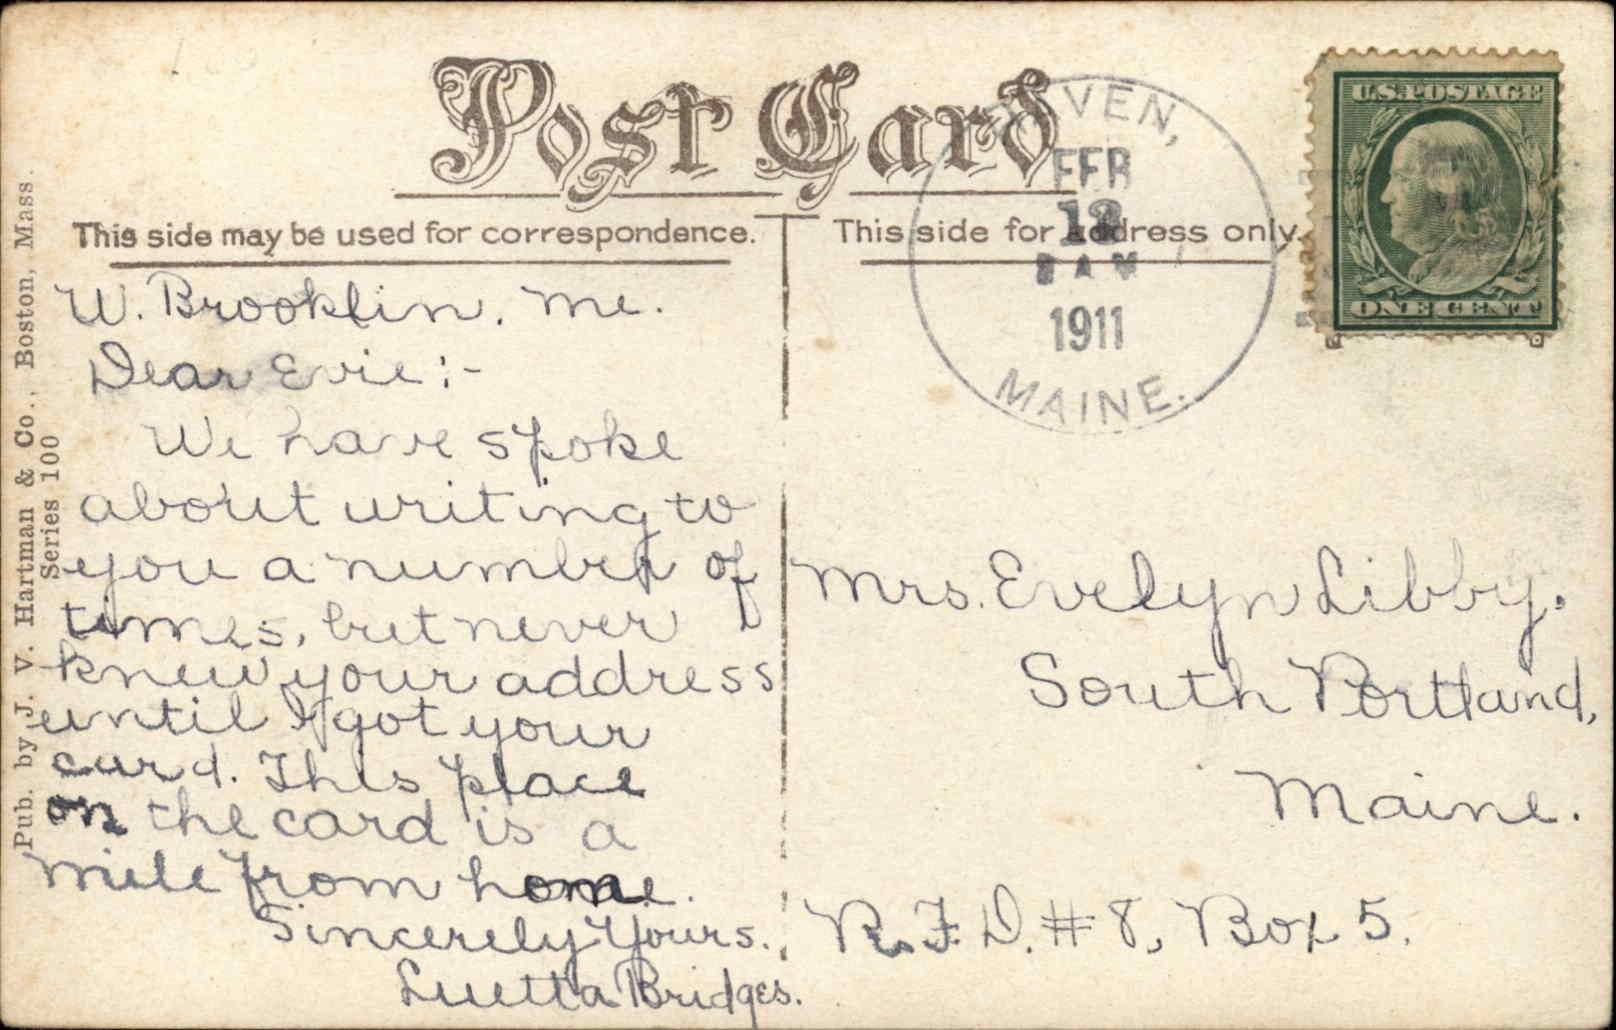 Post Card
This side may be used for correspondence.
This side for address only.
W. Brooklin, Me.
Dear Evie:-
We have spoke
about writing to
you a number of
times, but never
knew your address
until I got your
card. This place
on the card is a
mile from home.
Sincerely Yours.
Luetta Bridges.
Pub. by J. V. Hartman & Co., Boston, Mass.
Series 100
FEB
8 AM
1911
MAINE.
U.S. POSTAGE
ONE CENT
Mrs. Evelyn Libby.
South Portland,
Maine.
R.F.D. # 8, Box 5.